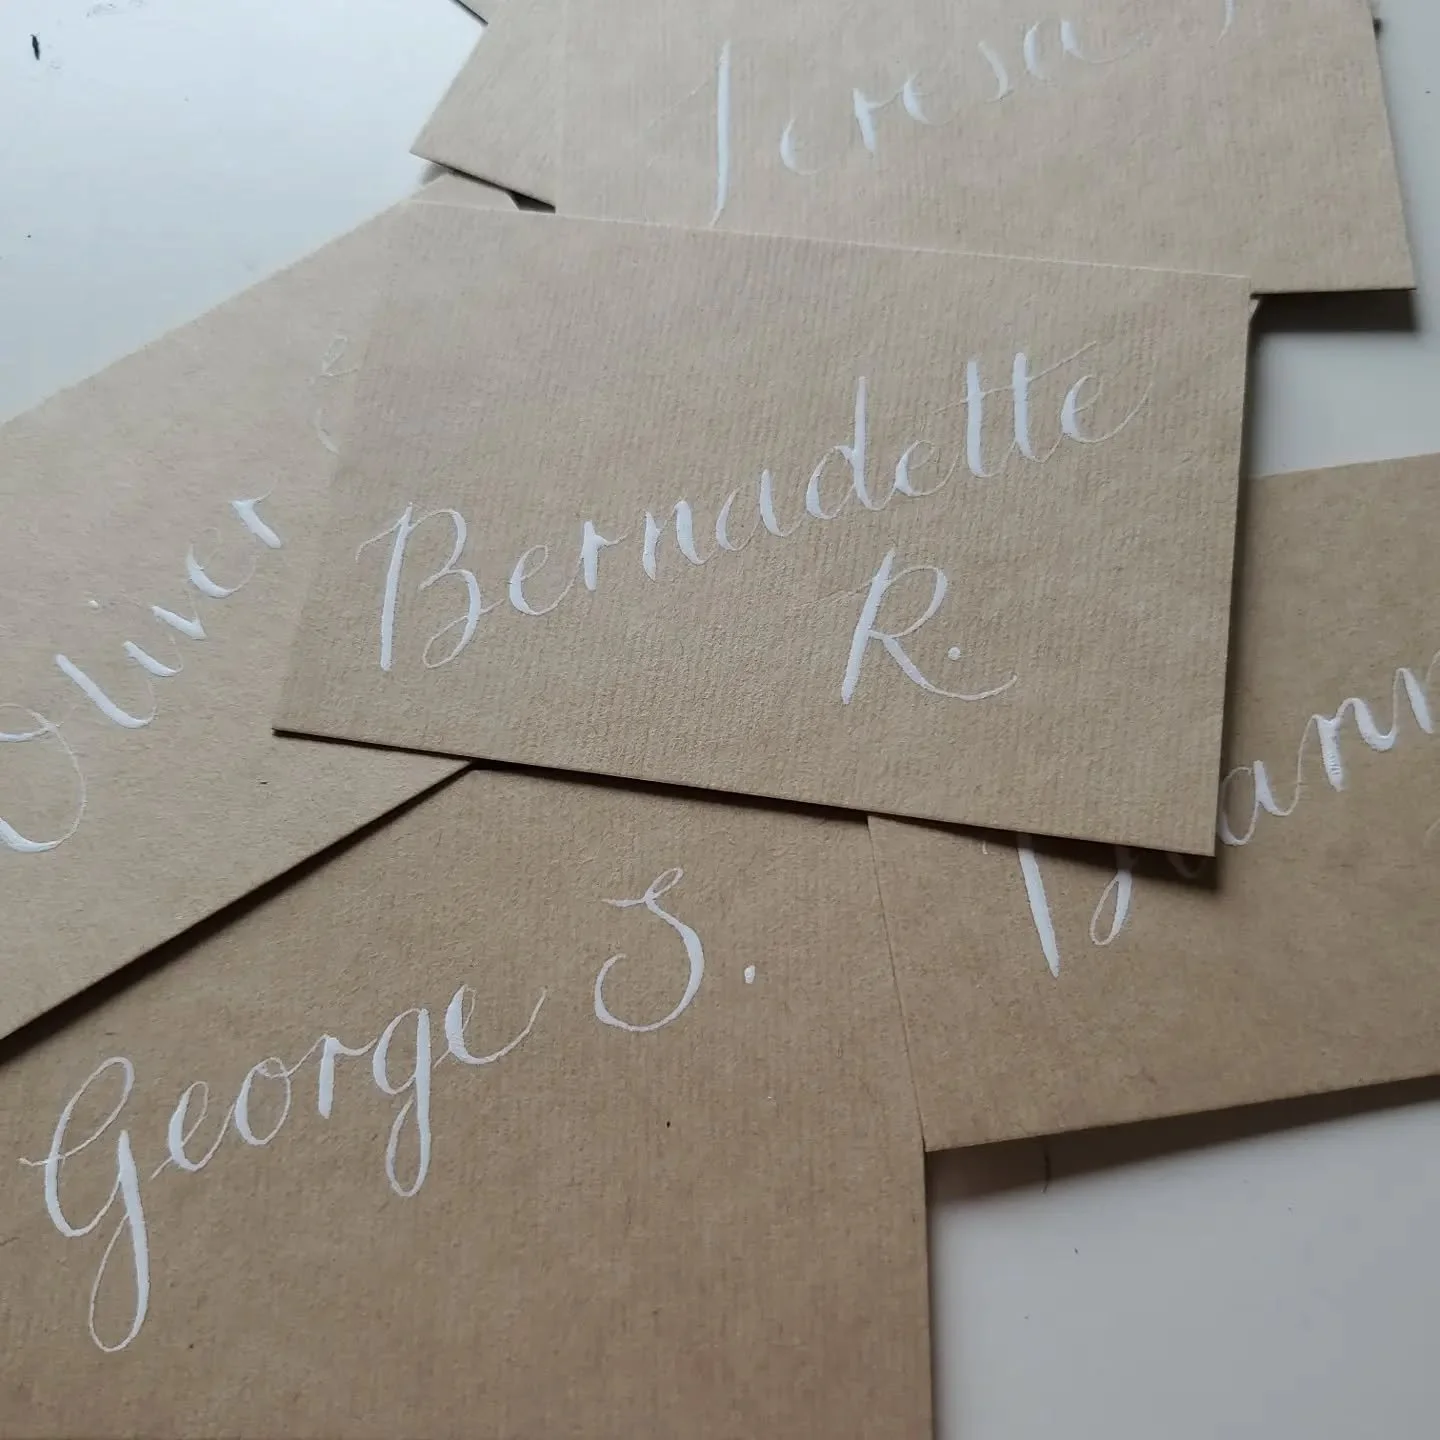 Teresa
Oliver
Bernadette
R.
George S.